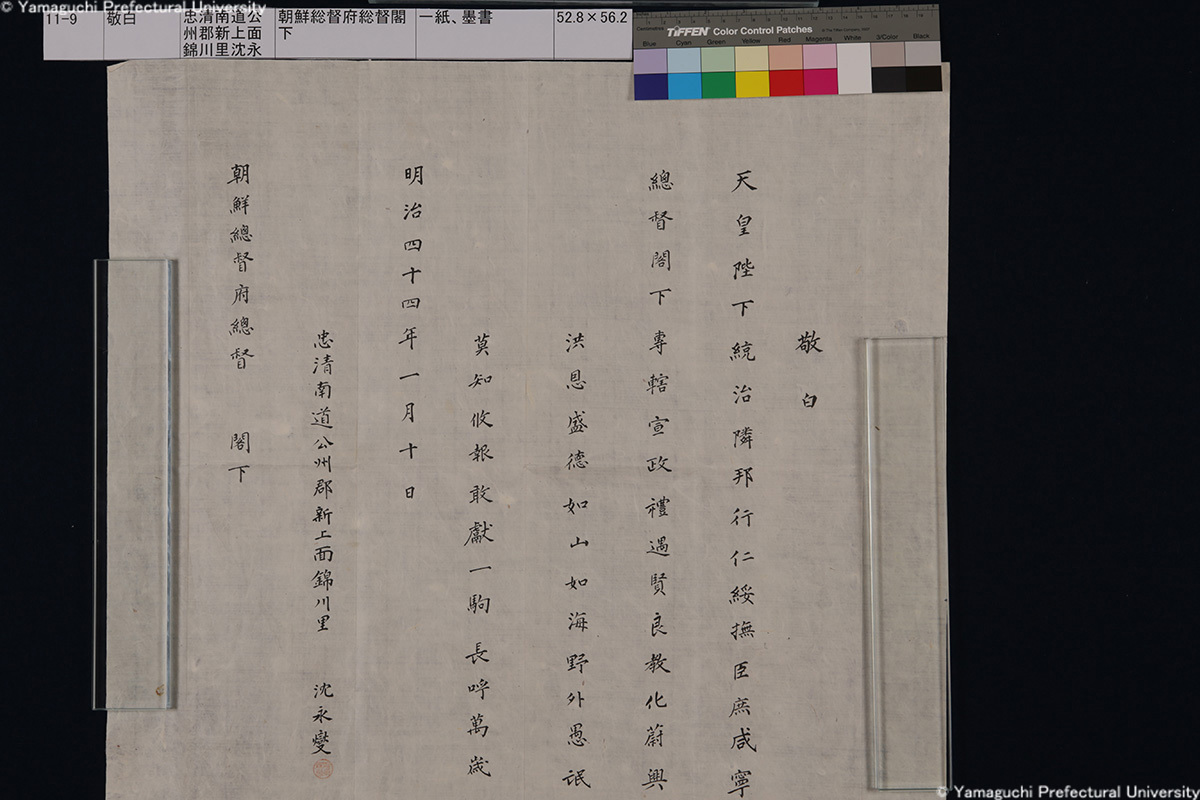 © Yamaguchi Prefectural University
11-9
敬白
忠清南道公
州郡新上面
錦川里沈永
朝鮮総督府総督閣
下
一紙、墨書
52.8×56.2
TIFFEN Color Control Patches
Blue Cyan Green Yellow Red Magenta White 3/Color Black
敬白
天皇陛下統治隣邦行仁綏撫臣庶咸寧
總督閣下專轄宣政禮遇賢良教化蔚興
洪恩盛德如山如海野外愚氓
莫知攸報敢獻一駒長呼萬歲
明治四十四年一月十日
忠清南道公州郡新上面錦川里 沈永燮
朝鮮總督府總督 閣下
© Yamaguchi Prefectural University